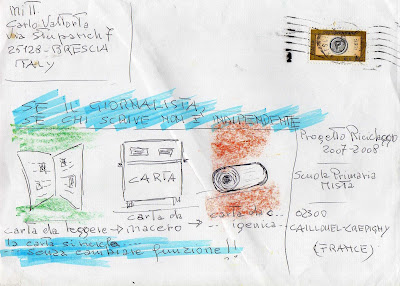 mitt
Carlo Vallorta
via Stuparich 7
25128 - BRESCIA
ITALY
SE IL GIORNALISTA,
SE CHI SCRIVE NON È INDIPENDENTE
CARTA
carta da leggere → carta da macero → carta
igenica
la carta si ricicla....
senza cambiare funzione!!
Progetto Riciclaggio
2007-2008
Scuola Primaria
Mista
02300
CAILLOUEL-CREPIGNY
(FRANCE)